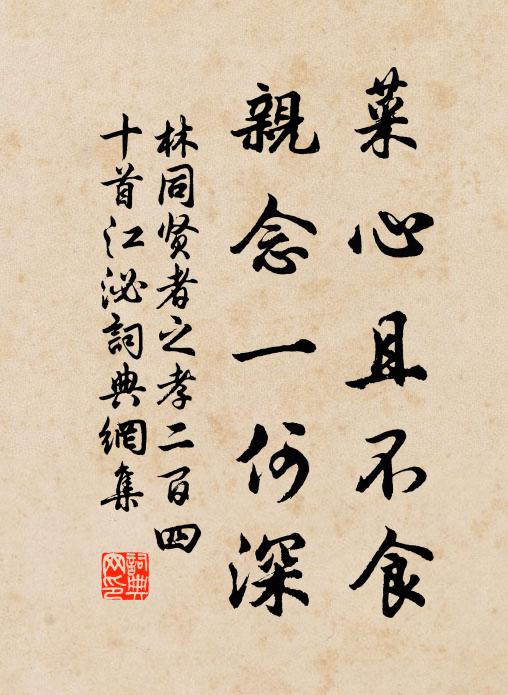 菜心且不食
親念一何深
林同贤者之孝二百四
十首江泌詞典網集
詞典
网印